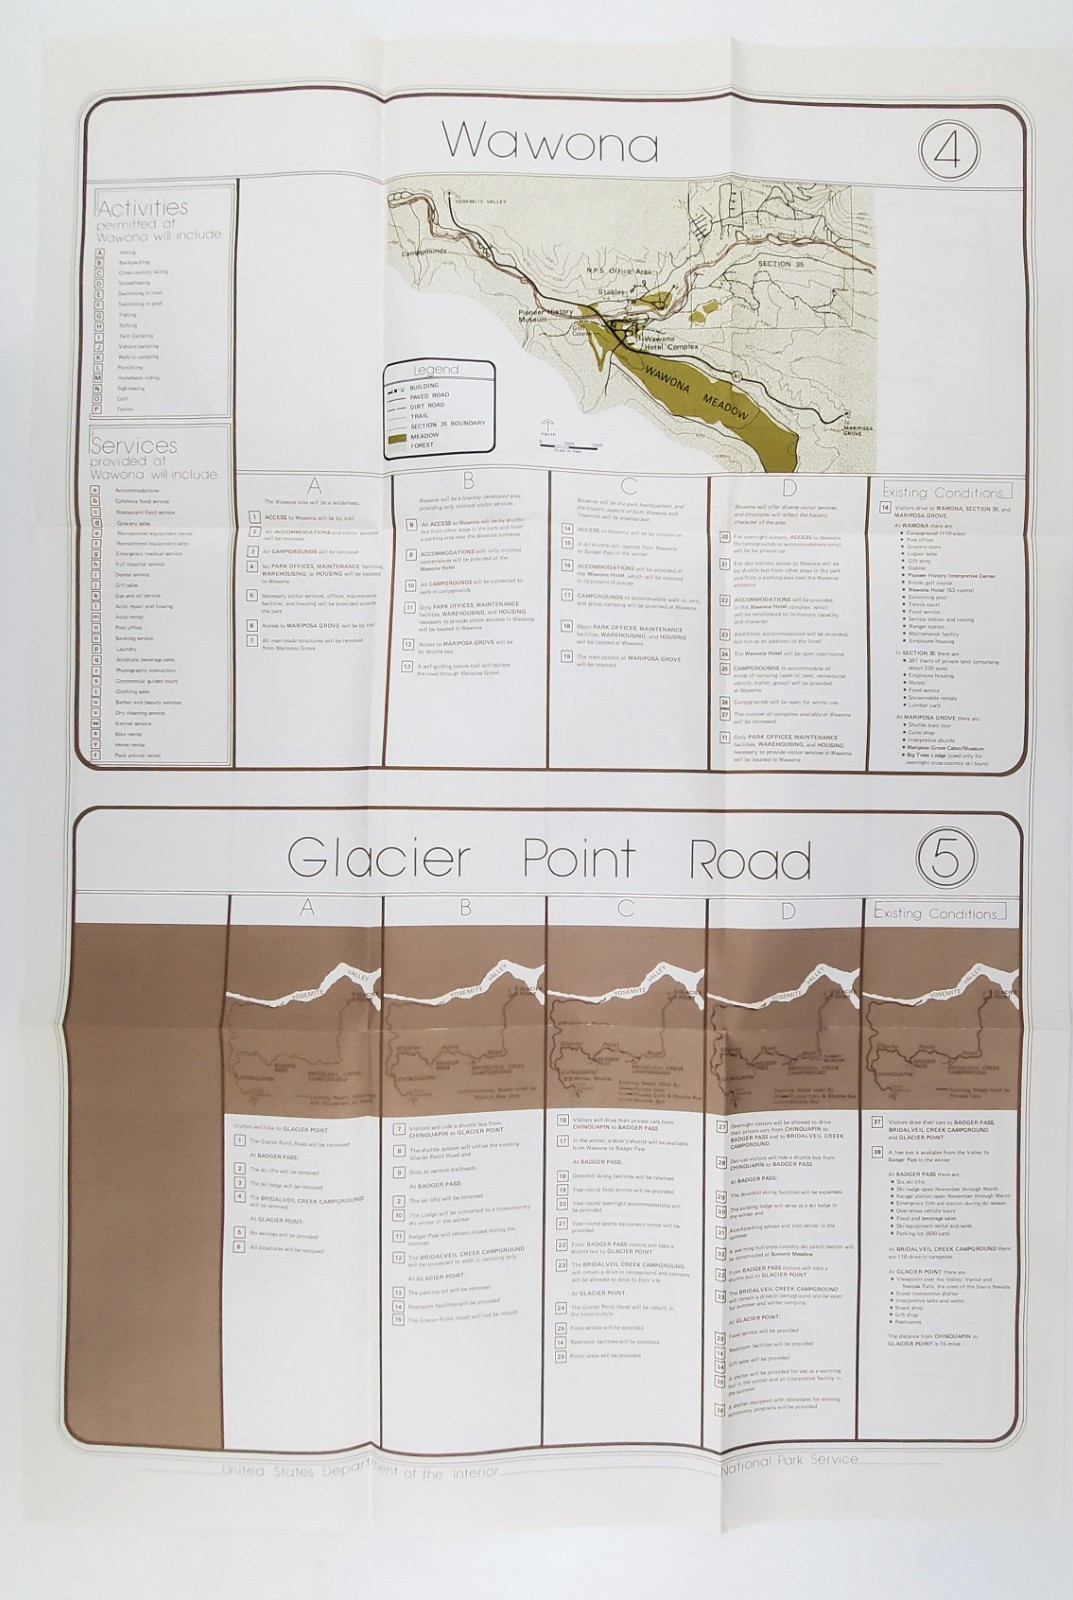 Wawona
4
Activities
permitted at
Wawona will include
A Hiking
B Backpacking
C Cross-country skiing
D Snowshoeing
E Swimming in river
F Swimming in pool
G Fishing
H Rafting
I Tent camping
J Vehicle camping
K Walk-in camping
L Picnicking
M Horseback riding
N Sightseeing
O Golf
P Tennis
Services
provided at
Wawona will include
a Accommodations
b Cafeteria food service
c Restaurant food service
d Grocery sales
e Recreational equipment rental
f Recreational equipment sales
g Emergency medical service
h Full hospital service
i Dental service
j Gift sales
k Gas and oil service
l Auto repair and towing
m Auto rental
n Post office
o Banking service
p Laundry
q Alcoholic beverage sales
r Photography instruction
s Commercial guided tours
t Clothing sales
u Barber and beauty services
v Dry cleaning service
w Kennel service
x Bike rental
y Horse rental
z Pack animal rental
TO YOSEMITE VALLEY
Campgrounds
N.P.S. Office Area
Stables
SECTION 35
Pioneer History
Museum
Golf
Course
Wawona
Hotel Complex
WAWONA MEADOW
41
TO
MARIPOSA
GROVE
Legend
BUILDING
PAVED ROAD
DIRT ROAD
TRAIL
SECTION 35 BOUNDARY
MEADOW
FOREST
north
Scale in Feet
A
The Wawona area will be a wilderness.
1 ACCESS to Wawona will be by trail
2 All ACCOMMODATIONS and visitor services
will be removed
3 All CAMPGROUNDS will be removed
4 No PARK OFFICES, MAINTENANCE facilities,
WAREHOUSING, or HOUSING will be located
in Wawona
5 Necessary visitor services, offices, maintenance
facilities, and housing will be provided outside
the park
6 Access to MARIPOSA GROVE will be by trail
7 All man-made structures will be removed
from Mariposa Grove
B
Wawona will be a low-key developed area,
providing only minimal visitor services.
8 All ACCESS to Wawona will be by shuttle
bus from other areas in the park and from
a parking area near the Wawona entrance
9 ACCOMMODATIONS with only minimal
conveniences will be provided at the
Wawona Hotel
10 All CAMPGROUNDS will be converted to
walk-in campgrounds
11 Only PARK OFFICES, MAINTENANCE
facilities, WAREHOUSING, and HOUSING
necessary to provide visitor services in Wawona
will be located in Wawona
12 Access to MARIPOSA GROVE will be
by shuttle bus
13 A self-guiding nature trail will replace
the road through Mariposa Grove
C
Wawona will be the park headquarters, and
the historic aspects of both Wawona and
Yosemite will be emphasized.
14 ACCESS to Wawona will be by private car
15 A ski shuttle will operate from Wawona
to Badger Pass in the winter
16 ACCOMMODATIONS will be provided at
the Wawona Hotel, which will be retained
in its present character
17 CAMPGROUNDS to accommodate walk-in, tent,
and group camping will be provided at Wawona
18 Major PARK OFFICES, MAINTENANCE
facilities, WAREHOUSING, and HOUSING
will be located at Wawona
19 The tram system at MARIPOSA GROVE
will be retained
D
Wawona will offer diverse visitor services,
and structures will reflect the historic
character of the area.
20 For overnight visitors, ACCESS to Wawona
(to campgrounds or accommodations only)
will be by private car
21 For day visitors, access to Wawona will be
by shuttle bus from other areas in the park
and from a parking area near the Wawona
entrance
22 ACCOMMODATIONS will be provided
in the Wawona Hotel complex, which
will be refurbished to its historic capacity
and character
23 Additional accommodations will be provided,
but not as an addition to the hotel
24 The Wawona Hotel will be open year-round
25 CAMPGROUNDS to accommodate all
kinds of camping (walk-in, tent, recreational
vehicle, trailer, group) will be provided
at Wawona
26 Campgrounds will be open for winter use
27 The number of campsites available at Wawona
will be increased
11 Only PARK OFFICES, MAINTENANCE
facilities, WAREHOUSING, and HOUSING
necessary to provide visitor services in Wawona
will be located in Wawona
Existing Conditions
14 Visitors drive to WAWONA, SECTION 35, and
MARIPOSA GROVE.
At WAWONA there are:
Campground (110 sites)
Post office
Grocery store
Liquor sales
Gift shop
Stables
Pioneer History Interpretive Center
9-hole golf course
Wawona Hotel (53 rooms)
Swimming pool
Tennis court
Food service
Service station and towing
Ranger station
Maintenance facility
Employee housing
In SECTION 35 there are:
361 tracts of private land comprising
about 220 acres
Employee housing
Motels
Food service
Snowmobile rentals
Lumber yard
At MARIPOSA GROVE there are:
Shuttle tram tour
Curio shop
Interpretive shuttle
Mariposa Grove Cabin/Museum
Big Trees Lodge (used only for
overnight cross-country ski tours)
Glacier Point Road
5
A
B
C
D
Existing Conditions
YOSEMITE VALLEY
GLACIER POINT
YOSEMITE VALLEY
GLACIER POINT
YOSEMITE VALLEY
GLACIER POINT
YOSEMITE VALLEY
GLACIER POINT
YOSEMITE VALLEY
GLACIER POINT
Visitors will hike to GLACIER POINT
1 The Glacier Point Road will be removed
At BADGER PASS:
2 The ski lifts will be removed
3 The ski lodge will be removed
4 The BRIDALVEIL CREEK CAMPGROUND
will be removed
At GLACIER POINT:
5 No services will be provided
6 All structures will be removed
7 Visitors will ride a shuttle bus from
CHINQUAPIN to GLACIER POINT
8 The shuttle system will utilize the existing
Glacier Point Road and
9 Stop at various trailheads
At BADGER PASS:
2 The ski lifts will be removed
10 The Lodge will be converted to a cross-country
ski center in the winter
11 Badger Pass will remain closed during the
summer
12 The BRIDALVEIL CREEK CAMPGROUND
will be converted to walk-in camping only
At GLACIER POINT:
13 The parking lot will be removed
14 Restroom facilities will be provided
15 The Glacier Point Hotel will not be rebuilt
16 Visitors will drive their private cars from
CHINQUAPIN to BADGER PASS
17 In the winter, a skier's shuttle will be available
from Wawona to Badger Pass
At BADGER PASS:
18 Downhill skiing facilities will be retained
19 Year-round food service will be provided
20 Year-round overnight accommodations will be
provided
21 Year-round sports equipment rental will be
provided
22 From BADGER PASS visitors will take a
shuttle bus to GLACIER POINT
23 The BRIDALVEIL CREEK CAMPGROUND
will remain a drive-in campground and campers
will be allowed to drive to their site
At GLACIER POINT:
24 The Glacier Point Hotel will be rebuilt in
the historic style
25 Food service will be provided
14 Restroom facilities will be provided
26 Picnic areas will be provided
27 Overnight visitors will be allowed to drive
their private cars from CHINQUAPIN to
BADGER PASS and to BRIDALVEIL CREEK
CAMPGROUND
28 Day-use visitors will ride a shuttle bus from
CHINQUAPIN to BADGER PASS
At BADGER PASS:
29 The downhill skiing facilities will be expanded
30 The existing lodge will serve as a ski lodge in
the winter and
31 A backpacking school and trail center in the
summer
32 A warming hut/cross-country ski patrol station will
be constructed at Summit Meadow
22 From BADGER PASS visitors will take a
shuttle bus to GLACIER POINT
33 The BRIDALVEIL CREEK CAMPGROUND
will remain a drive-in campground and be open
for summer and winter camping.
At GLACIER POINT:
25 Food service will be provided
14 Restroom facilities will be provided
34 Gift sales will be provided
35 A shelter will be provided for use as a warming
hut in the winter and an interpretive facility in
the summer
36 A shelter equipped with telescopes for evening
astronomy programs will be provided
37 Visitors drive their cars to BADGER PASS,
BRIDALVEIL CREEK CAMPGROUND
and GLACIER POINT
38 A free bus is available from the Valley to
Badger Pass in the winter
At BADGER PASS there are:
Six ski lifts
Ski lodge open November through March
Ranger station open November through March
Emergency first aid station during ski season
Oversnow vehicle tours
Food and beverage sales
Ski equipment rental and sales
Parking lot (600 cars)
At BRIDALVEIL CREEK CAMPGROUND there
are 110 drive-in campsites
At GLACIER POINT there are:
Viewpoint over the Valley, Vernal and
Nevada Falls, the crest of the Sierra Nevada
Stone interpretive shelter
Interpretive talks and walks
Snack shop
Gift shop
Restrooms
The distance from CHINQUAPIN to
GLACIER POINT is 15 miles
United States Department of the Interior
National Park Service